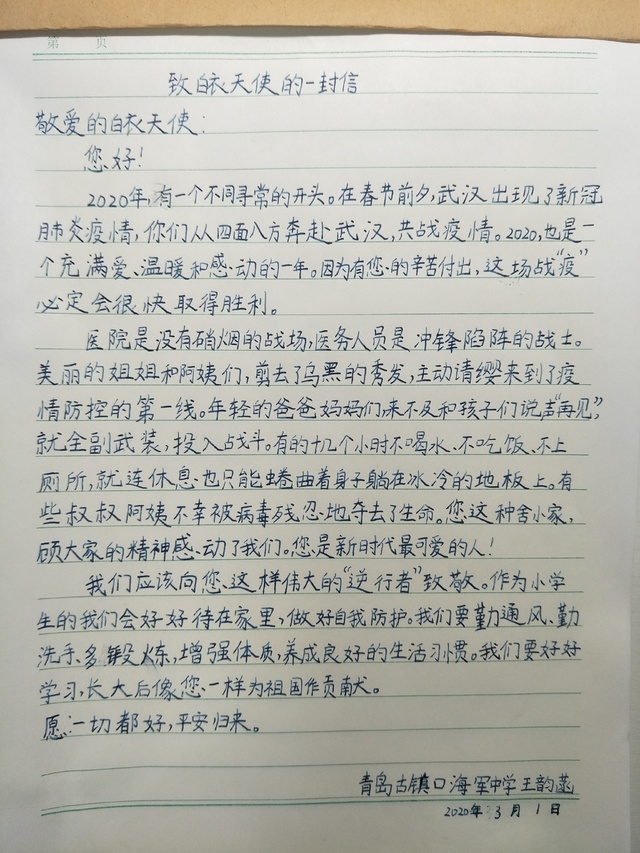 第 页
致白衣天使的一封信
敬爱的白衣天使:
您好!
2020年,有一个不同寻常的开头。在春节前夕,武汉出现了新冠
肺炎疫情,你们从四面八方奔赴武汉,共战疫情。2020,也是一
个充满爱、温暖和感动的一年。因为有您的辛苦付出,这场战“疫”
必定会很快取得胜利。
医院是没有硝烟的战场,医务人员是冲锋陷阵的战士。
美丽的姐姐和阿姨们,剪去了乌黑的秀发,主动请缨来到了疫
情防控的第一线。年轻的爸爸妈妈们,来不及和孩子们说声“再见”,
就全副武装,投入战斗。有的十几个小时不喝水、不吃饭、不上
厕所,就连休息也只能蜷曲着身子躺在冰冷的地板上。有
些叔叔阿姨不幸被病毒残忍地夺去了生命。您这种舍小家,
顾大家的精神感动了我们。您是新时代最可爱的人!
我们应该向您这样伟大的“逆行者”致敬。作为小学
生的我们会好好待在家里,做好自我防护。我们要勤通风、勤
洗手、多锻炼,增强体质,养成良好的生活习惯。我们要好好
学习,长大后像您一样为祖国作贡献。
愿一切都好,平安归来。
青岛古镇口海军中学王韵菡
2020年3月1日